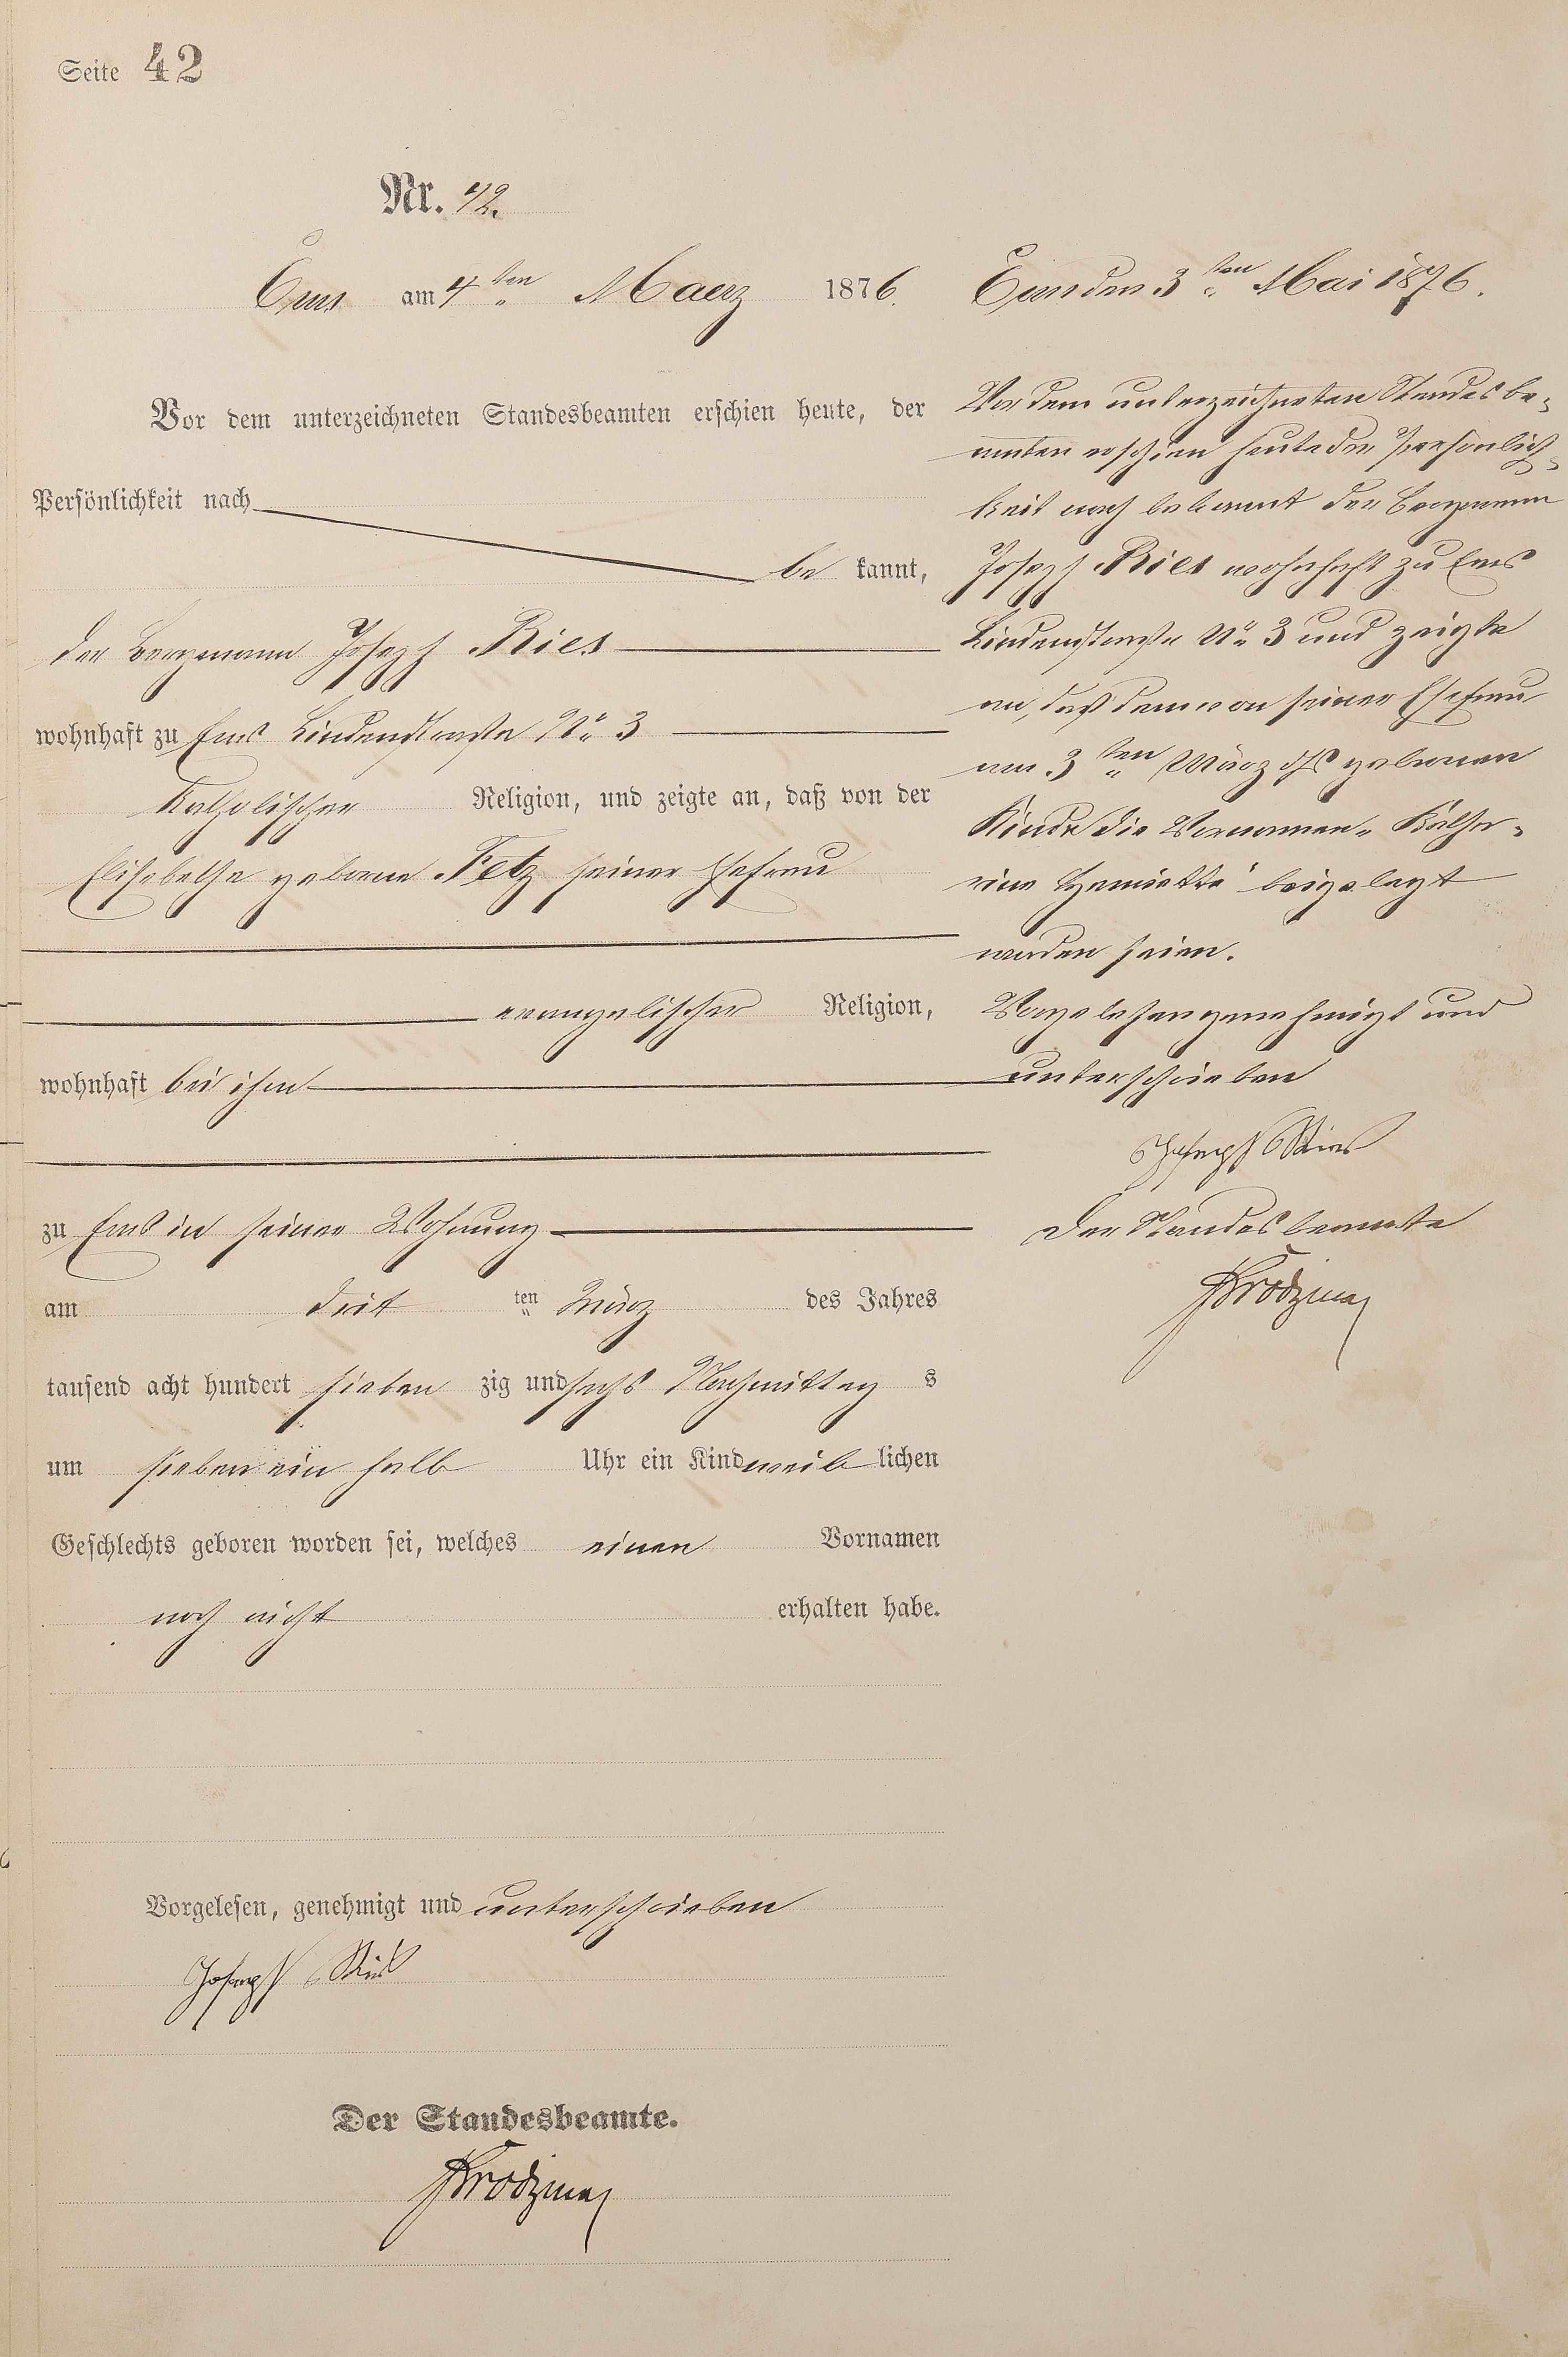 Seite 42
Nr. 42.
Ems am 4ten Maerz 1876.
Vor dem unterzeichneten Standesbeamten erschien heute, der
Persönlichkeit nach
be kannt,
der Bergmann Joseph Ries
wohnhaft zu Ems Lindenstraße No 3
Katholischer Religion, und zeigte an, daß von der
Elisabetha geborne Fetz seiner Ehefrau
evangelischer Religion,
wohnhaft bei ihm
zu Ems in seiner Wohnung
am drit ten März des Jahres
tausend acht hundert sieben zig und sechs Nachmittag s
um sieben ein halb Uhr ein Kind weib lichen
Geschlechts geboren worden sei, welches einen Vornamen
noch nicht erhalten habe.
Vorgelesen, genehmigt und unterschrieben
Joseph Ries
Der Standesbeamte.
Ems den 3ten Mai 1876.
Vor dem unterzeichneten Standesbe-
amten erschien heute der Persönlich-
keit nach bekannt der Bergmann
Joseph Ries wohnhaft zu Ems
Lindenstraße No 3 und zeigte
an, daß dem von seiner Ehefrau
am 3ten März djs geborenen
Kinde die Vornamen „Katha-
rine Henriette" beigelegt
worden seien.
Vorgelesen genehmigt und
unterschrieben
Joseph Ries
Der Standesbeamte